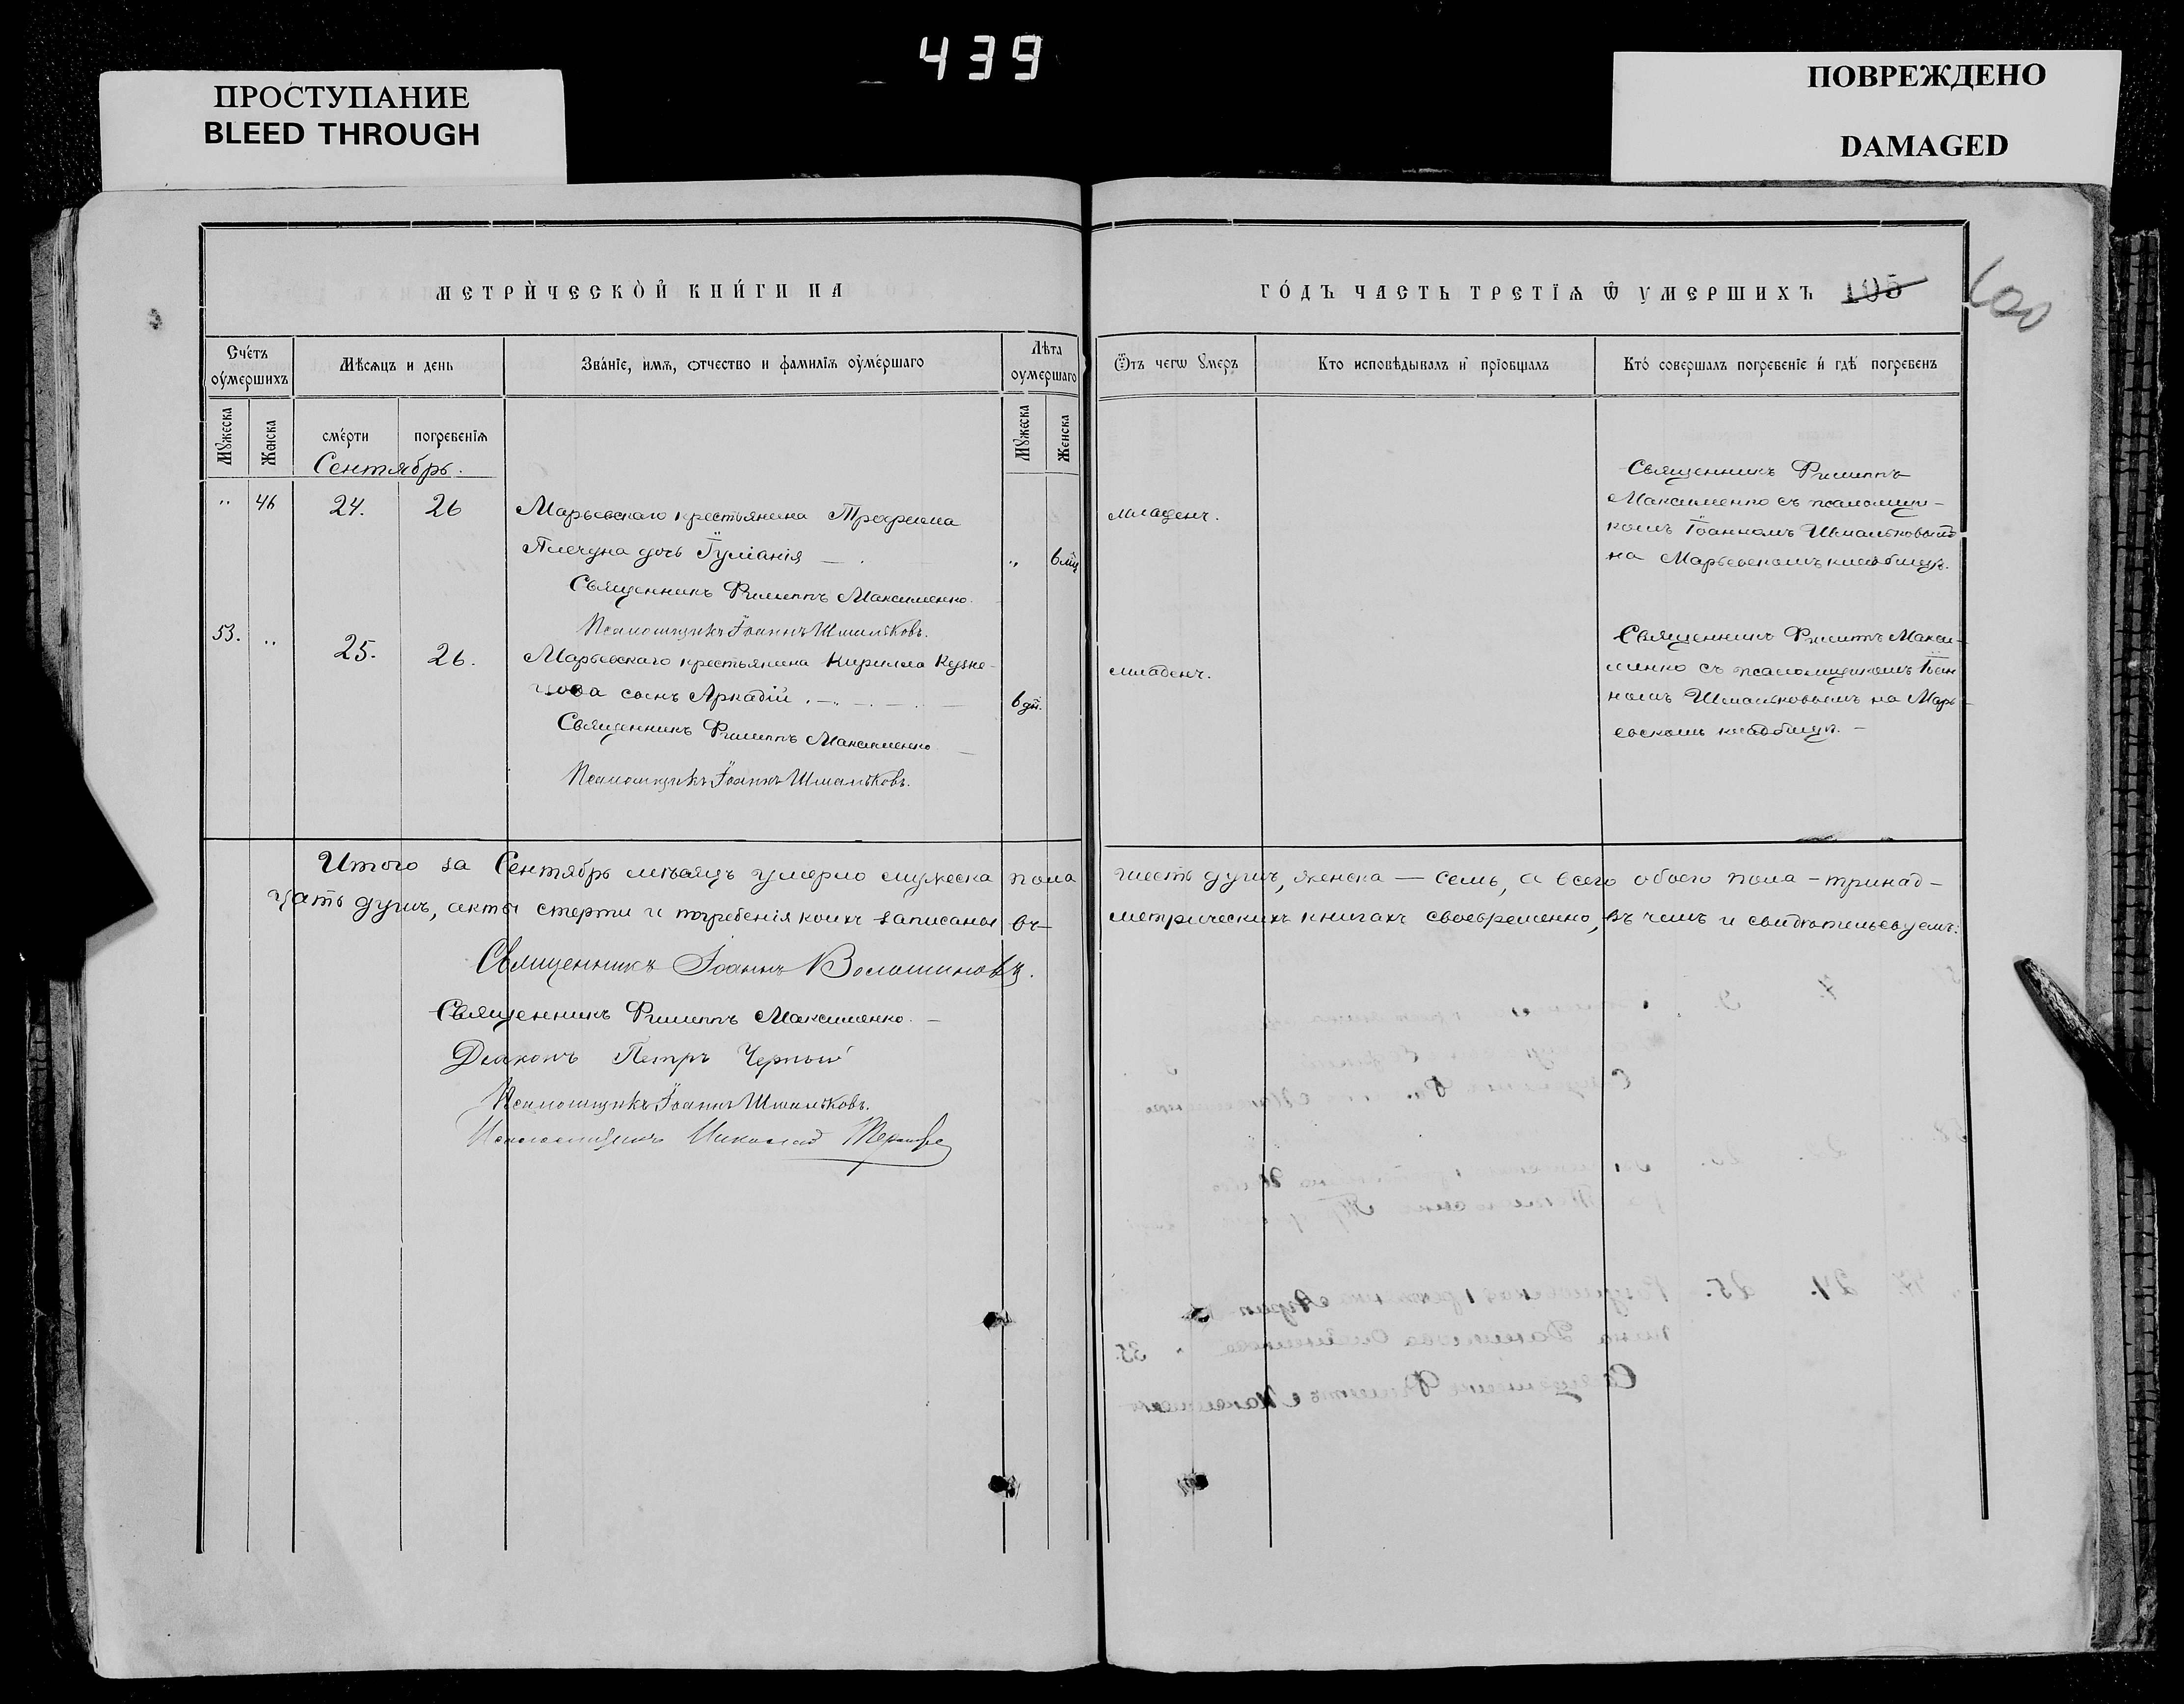 439
ПРОСТУПАНИЕ
BLEED THROUGH
ПОВРЕЖДЕНО
DAMAGED
МЕТРИ́ЧЕСКОЙ КНИ́ГИ НА
ГО́ДЪ ЧАСТЬ ТРЕТІѦ Ѿ УМЕРШИХЪ 105
600
Сче́тъ оумершихъ
Мѣсѧцъ и день
Зва́ніе, имѧ, отчество и фамиліѧ оуме́ршаго
Лѣта оуме́ршаго
Ѿтъ чегѡ ꙋмеръ
Кто исповѣдывалъ и прїобщалъ
Кто́ совершалъ погребе́ніе и гдѣ погребенъ
Мꙋжеска
Женска
сме́рти
погребе́нїѧ
Мꙋжеска
Женска
Сентябрь.
" 46 24. 26
Марьевскаго крестьянина Трофима
Плечуна дочь Іуліанія
„ 6 мц
младенч.
Священникъ Филиппъ
Максименко съ псаломщи-
комъ Іоанномъ Шмальковымъ
на Марьевскомъ кладбищѣ.
Священникъ Филиппъ Максименко.
Псаломщикъ Іоаннъ Шмальковъ.
53. " 25. 26.
Марьевскаго крестьянина Кирилла Кузне-
цова сынъ Аркадій
6 дн.
младенч.
Священникъ Филиппъ Макси-
менко съ псаломщикомъ Іоан
номъ Шмальковымъ на Марь-
евскомъ кладбищѣ. —
Священникъ Филиппъ Максименко
Псаломщикъ Іоаннъ Шмальковъ.
Итого за Сентябрь мѣсяцъ умерло мужеска пола шесть душъ, женска — семь, а всего обоего пола – тринад-
цать душъ, акты смерти и погребенія коихъ записаны въ метрическихъ книгахъ своевременно, въ чемъ и свидѣтельствуемъ:
Священникъ Іоаннъ Волошиновъ.
Священникъ Филиппъ Максименко. —
Діаконъ Петръ Черный
Псаломщикъ Іоаннъ Шмальковъ.
Псаломщикъ Николай